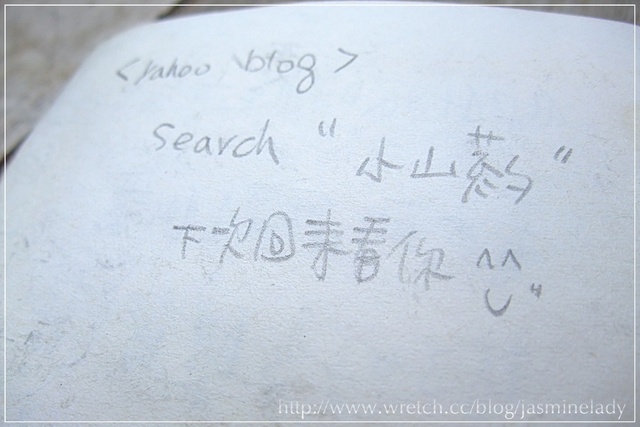 <Yahoo blog>
Search “小山”
下次回來看你 ^^ ”
http://www.wretch.cc/blog/jasminelady